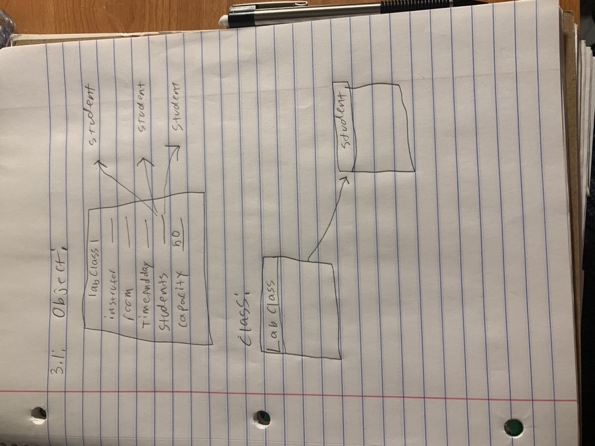 3.1: Object:
labClass1
instructor
room
TimeAndday
Students
Capacity
student
student
student
Class:
Lab Class
student